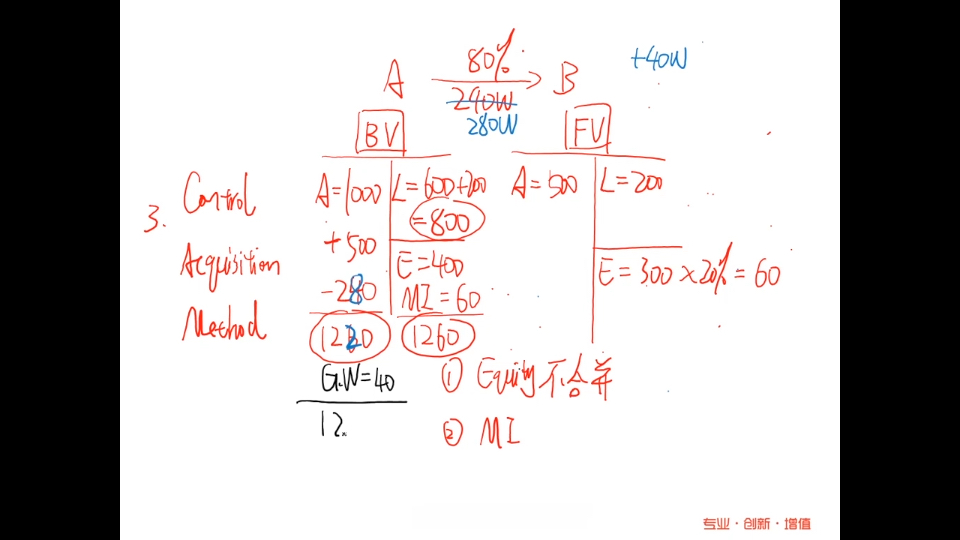 80%
+40W
A → B
240W
280W
BV
FV
3. Control
Acquisition
Method
A=1000
+500
-280
1220
G.W=40
12.
L=600+200
=800
E=400
MI=60
1260
A=500
L=200
E=300×20%=60
① Equity不合并
② MI
专业·创新·增值